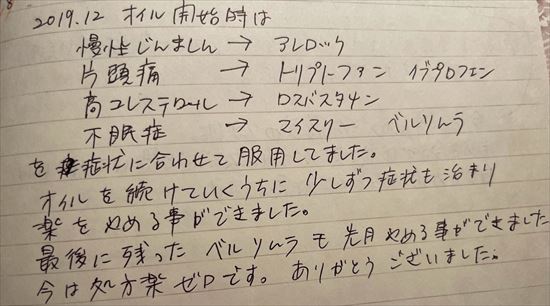 2019.12 オイル開始時は
慢性じんましん → アレロック
片頭痛 → トリプトファン イブプロフェン
高コレステロール → ロスバスタチン
不眠症 → マイスリー ベルソムラ
を症状に合わせて服用してました。
オイルを続けていくうちに少しずつ症状も治まり
薬をやめる事ができました。
最後に残ったベルソムラも先月やめる事ができました
今は処方薬ゼロです。ありがとうございました。